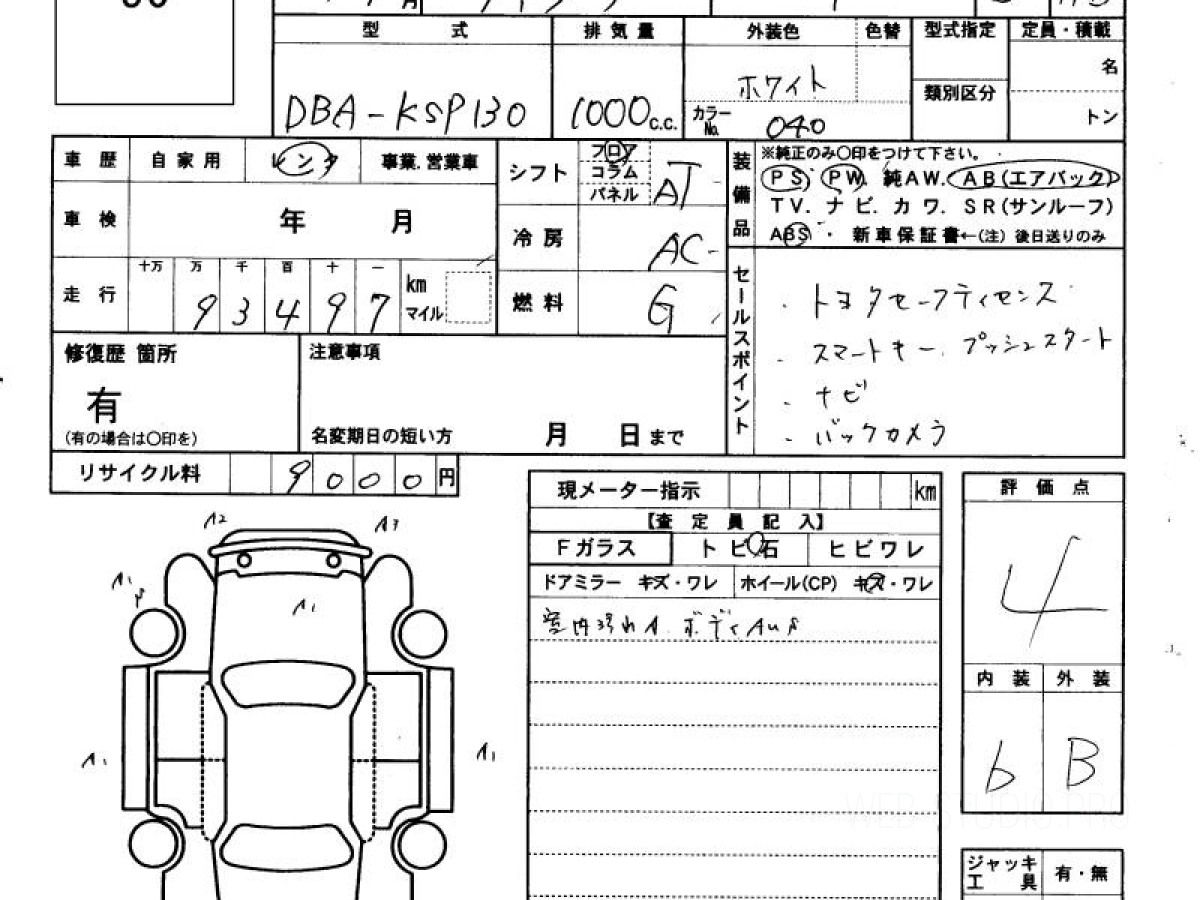 月
型式 排気量 外装色 色替 型式指定 定員・積載
名
ホワイト
類別区分
DBA-KSP130 1000c.c. カラーNo. 040 トン
車歴 自家用 レンタ 事業.営業車 シフト フロア コラム パネル AT
装備品 ※純正のみ〇印をつけて下さい。
PS. PW. 純AW. AB(エアバック)
TV. ナビ. カワ. SR(サンルーフ)
ABS・新車保証書←(注) 後日送りのみ
車検 年 月 冷房 AC
走行 十万 万 千 百 十 一
93497 km マイル 燃料 G
セールスポイント
・トヨタセーフティセンス
・スマートキー、プッシュスタート
・ナビ
・バックカメラ
修復歴 箇所 注意事項
有
(有の場合は〇印を) 名変期日の短い方 月 日まで
リサイクル料 9000円
現メーター指示 km
【査定員記入】
Fガラス トビ石 ヒビワレ
ドアミラー キズ・ワレ ホイール(CP) キズ・ワレ
室内汚れA. ボディAUS
評価点
4
内装 外装
b B
A2 A3
A1
A1
A1 A1
WEB STUDIO PRO
ジャッキ 工具 有・無